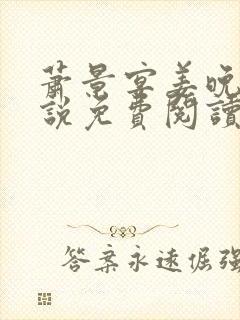 蕭景宴姜晚
說免費閱讀
答案永遠倔強